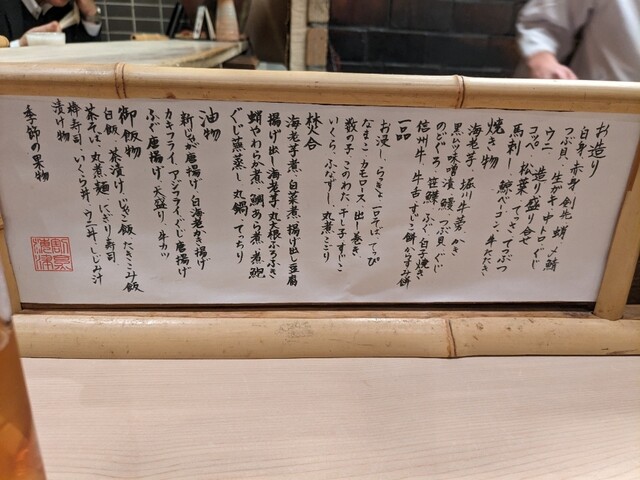 お造り
白身、赤身、剣先、蛸、〆鯖
つぶ貝、生がキ、中トロ、ぐじ
ウニ、造り盛り合せ
コッペ、松葉、てっさ、てっぷつ
馬刺し、鯨ベーコン、牛たたき
焼き物
海老芋、堀川牛蒡、かき
黒ムツ味噌漬、鰻、つぶ貝、ぐじ
のどぐろ、笹鰈、ふぐ白子焼き
信州牛、牛舌、すいこ餅、からすみ餅
一品
お浸し、らっきょ、一口そば、てっぴ
なまこ、カモロース、出し巻き
数の子、このわた、干し子、すじこ
いくら、ふなずし、丸煮こごり
焚合
海老芋煮、白菜煮、揚げ出し豆腐
揚げ出し海老芋、丸大根ふろふき
蛸やわらか煮、鯛あら煮、煮鮑
ぐじ蕪蒸し、丸鍋、てっちり
油物
新じゃが唐揚げ、白海老かき揚げ
カキフライ、アジフライ、ぐじ唐揚げ
ふぐ唐揚げ、天盛り、牛カツ
御飯物
白飯、茶漬け、じゃこ飯、たきこみ飯
茶そば、丸煮麺、にぎり寿司
棒寿司、いくら丼、ウニ丼、しじみ汁
漬け物
季節の果物